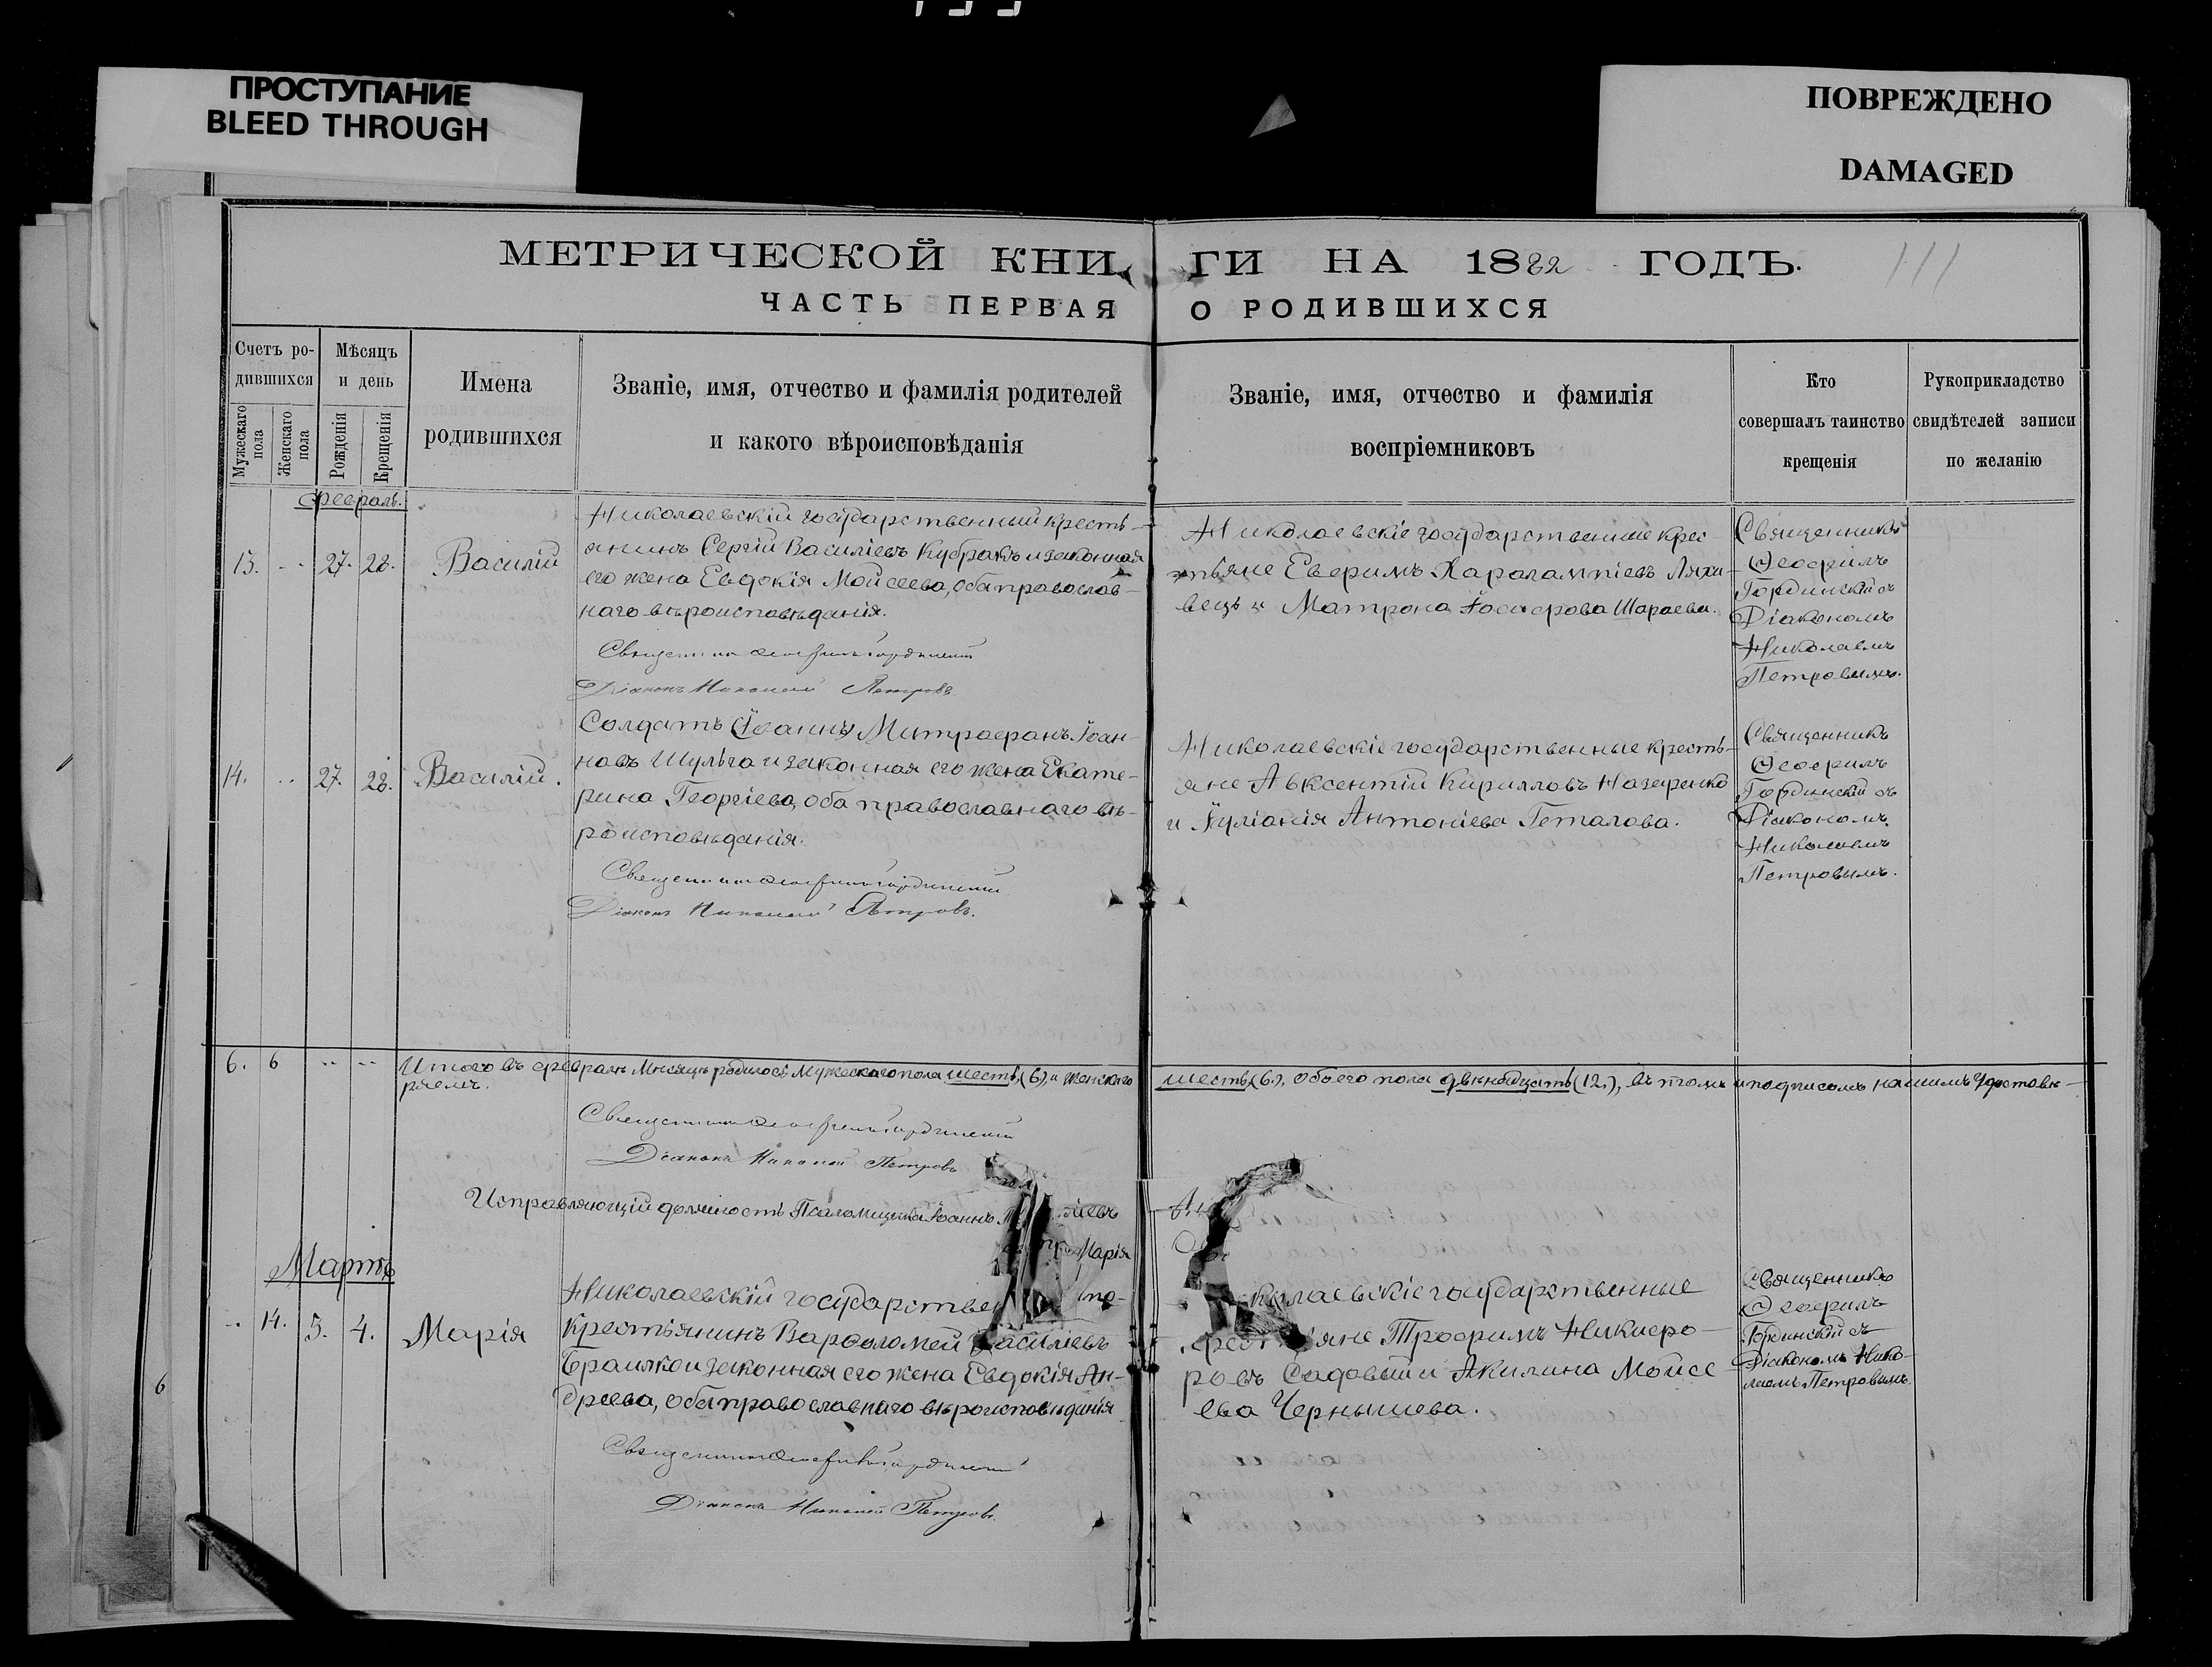 ПРОСТУПАНИЕ
BLEED THROUGH
ПОВРЕЖДЕНО
DAMAGED
МЕТРИЧЕСКОЙ КНИ ГИ НА 1882 ГОДЪ.
111
ЧАСТЬ ПЕРВАЯ О РОДИВШИХСЯ
Счетъ ро-
дившихся
Мужескаго пола
Женскаго пола
Мѣсяцъ
и день
Рожденія
Крещенія
Имена
родившихся
Званіе, имя, отчество и фамилія родителей
и какого вѣроисповѣданія
Званіе, имя, отчество и фамилія
воспріемниковъ
Кто
совершалъ таинство
крещенія
Рукоприкладство
свидѣтелей записи
по желанію
Февраль.
13. - - 27. 28. Василій
Николаевскій государственный кресть-
янинъ Сергій Василіевъ Кубракъ и законная
его жена Евдокія Мойсеева, оба православ-
наго вѣроисповѣданія.
Діаконъ Николай Петровъ
Николаевскіе государственные крес-
тьяне Евфимъ Харалампіевъ Ляхи-
вець и Матрона Іосифова Шараева.
Священникъ
Ѳеофилъ
Гординскій съ
Діакономъ
Николаемъ
Петровымъ.
14. .. 27. 28. Василій.
Солдатъ (Іоаннъ) Митрофанъ Іоан-
новъ Шульга и законная его жена Екате-
рина Георгіева, оба православнаго вѣ-
роисповѣданія.
Діаконъ Николай Петровъ.
Николаевскіе государственные кресть-
яне Авксентій Кирилловъ Назаренко
и Іуліанія Антоніева Геталова.
Священникъ
Ѳеофилъ
Гординскій съ
Діакономъ
Николаемъ
Петровымъ.
6. 6 -- -- Итого въ февралѣ мѣсяцѣ родилось мужескаго пола шесть (6), и женскаго шесть (6), обоего пола двѣнадцать (12), въ томъ и подписомъ нашимъ удостовѣ-
ряемъ.
Діаконъ Николай Петровъ
Исправляющій должность Псаломщика Іоаннъ
Марія
Мартъ
.. 14. 3. 4. Марія
Николаевскій государствен
крестьянинъ Варѳоломей Василіевъ
Браилко и законная его жена Евдокія Ан-
дреева, оба православнаго вѣроисповѣданія
Діаконъ Николай Петровъ.
колаевскіе государственные
крестьяне Трофимъ Никифо-
ровъ Садовый и Акилина Мойсе
ева Чернышева.
Священникъ
Ѳеофилъ
Гординскій съ
Діакономъ Нико-
лаемъ Петровымъ.
6